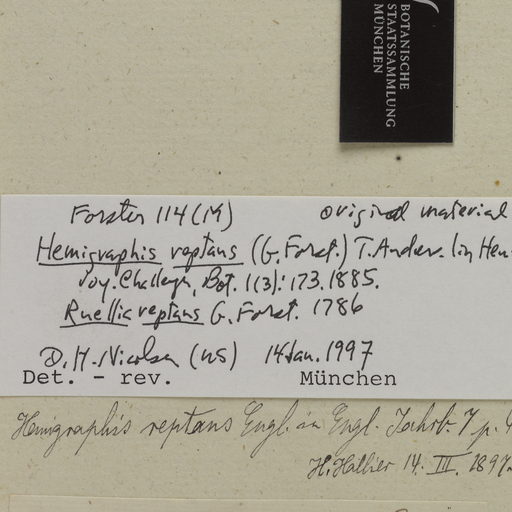 BOTANISCHE
STAATSSAMMLUNG
MÜNCHEN
Forster 114 (M) original material
Hemigraphis reptans (G. Forst.) T. Anders. in Hem
Voy. Challeng, Bot. 1(3): 173. 1885.
Ruellia reptans G. Forst. 1786
D. H. Nicolson (US) 14 Jan. 1997
Det. - rev. München
Hemigraphis reptans Engl. in Engl. Jahrb. 7 p.
H. Hallier 14. III. 1897